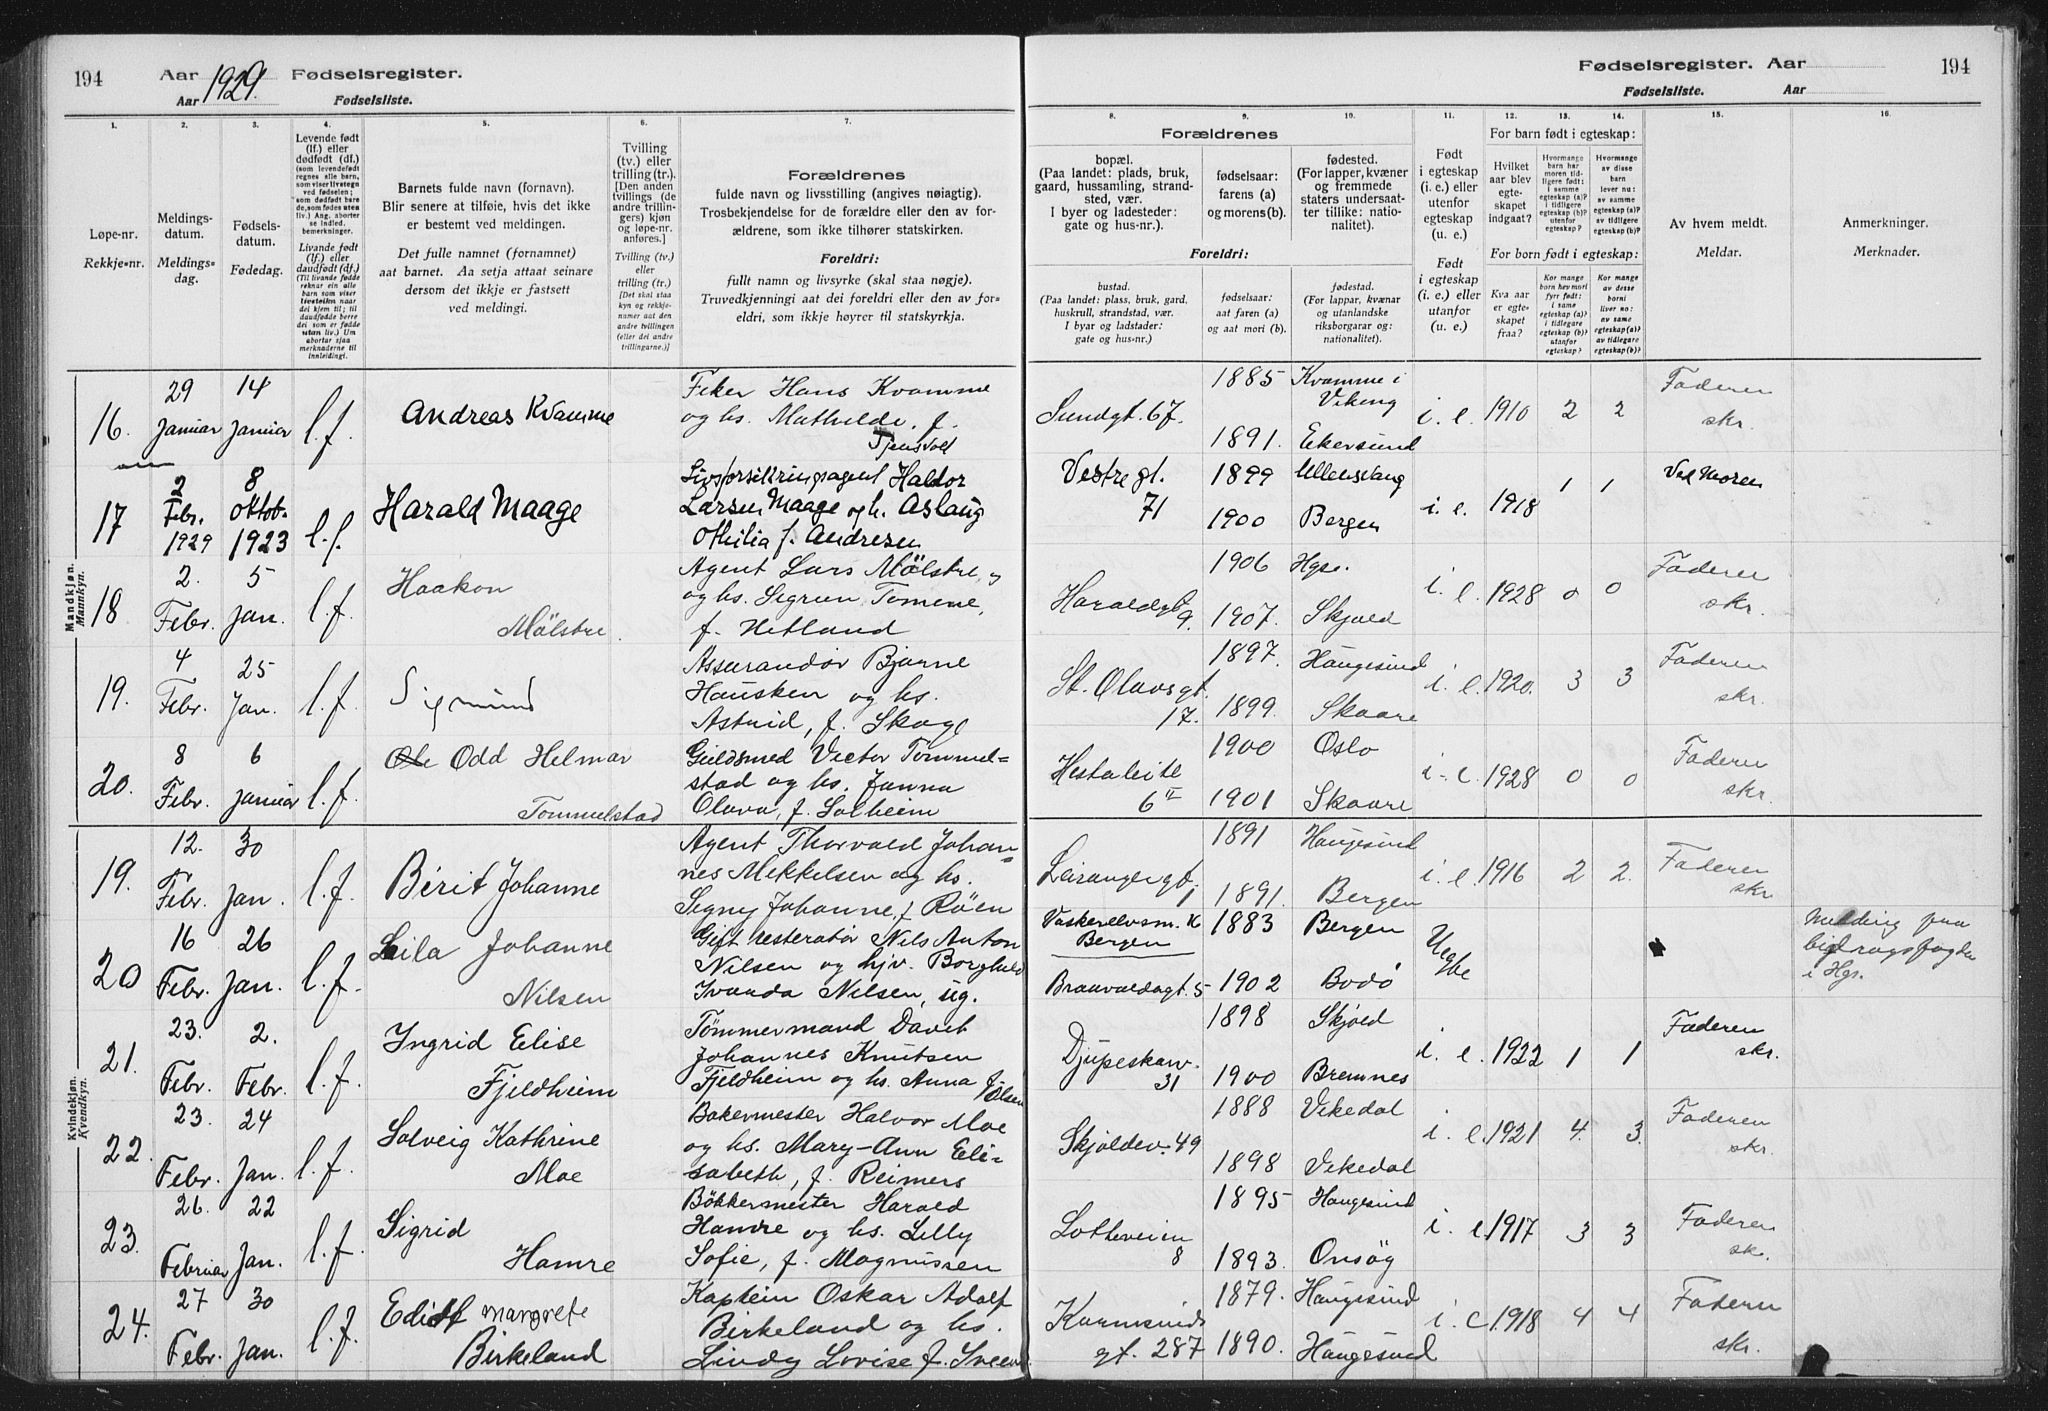 194 Aar 1929. Fødselsregister.
Aar Fødselsliste.
Fødselsregister. Aar 194
Fødselsliste. Aar
1. 2. 3. 4. 5. 6. 7.
Løpe-nr.
Rekkje-nr.
Meldings-
datum.
Meldings-
dag.
Fødsels-
datum.
Fødedag.
Levende født
(lf.) eller
dødfødt (df.)
Livande født
(lf.) eller
daudfødt (df.)
Barnets fulde navn (fornavn).
Blir senere at tilføie, hvis det ikke
er bestemt ved meldingen.
Det fulle namnet (fornamnet)
aat barnet. Aa setja attaat seinare
dersom det ikkje er fastsett
ved meldingi.
Tvilling
(tv.) eller
trilling (tr.)
[Den anden
tvillings (de
andre trillin-
gers) kjøn
og løpe-nr.
anføres.]
Tvilling (tv.)
eller
trilling (tr.)
[Det skal staa
kyn og rekkje-
numer aat den
andre tvillingen
(eller dei andre
trillingarne.)]
Forældrenes
fulde navn og livsstilling (angives nøiagtig).
Trosbekjendelse for de forældre eller den av for-
ældrene, som ikke tilhører statskirken.
Foreldri:
fullt namn og livsyrke (skal staa nøgje).
Truvedkjenningi aat dei foreldri eller den av for-
eldri, som ikkje høyrer til statskyrkja.
8. 9. 10. 11. 12. 13. 14. 15. 16.
Forældrenes
bopæl.
(Paa landet: plads, bruk,
gaard, hussamling, strand-
sted, vær.
I byer og ladesteder:
gate og hus-nr.).
Foreldri:
bustad.
(Paa landet: plass, bruk, gard,
huskrull, strandstad, vær.
I byar og ladstader:
gate og hus-nr.)
fødselsaar:
farens (a)
og morens (b).
fødselsaar:
aat faren (a)
og aat mori (b).
fødested.
(For lapper, kvæner
og fremmede
staters undersaat-
ter tillike: natio-
nalitet).
fødestad.
(For lappar, kvænar
og utanlandske
riksborgarar og:
nationalitet).
Født
i egteskap
(i. e.) eller
utenfor
egteskap
(u. e.)
Født
i egteskap
(i. e.) eller
utanfor
(u. e.)
For barn født i egteskap:
Hvilket
aar blev
egte-
skapet
indgaat?
For born født i egteskap:
Kva aar
er egte-
skapet
fraa?
Av hvem meldt.
Meldar.
Anmerkninger.
Merknader.
Mandkjøn.
Mannkyn.
16. 29 Januar 14 Januar l. f. Andreas Kvamme
Hans Kvamme
og hs. Mathilde, f.
Tjensvoll
Sundgt. 67. 1885 Kvamme i
Viking
1891. Ekersund i. e. 1910 2 2 Faderen
skr.
17 2 Febr. 1929 8 Oktob. 1923 l. f. Harald Maage
Livsforsikringsagent Haldor
Larsen Maage og h. Aslaug
Othilia f. Andresen
Vestregt. 71 1899 Ullensvang
1900 Bergen i. e. 1918 1 1 Ved Moren
18 2. Febr. 5 Jan. l. f. Haakon
Mölstre.
Agent Lars Mölstre,
og hs. Sigrun Tomine,
f. Hetland
Haraldsgt. 9. 1906 Hgs.
1907. Skjold i. e. 1928 0 0 Faderen
skr.
19. 4 Febr. 25 Jan. l. f. Sigmund
Assurandør Bjarne
Hausken og hs.
Astrid, f. Skoge
St. Olavsgt. 17. 1897. Haugesund
1899. Skaare i. e. 1920. 3 3 Faderen
skr.
20. 8 Febr. 6 Januar l. f. Odd Helmar
Tommelstad
Guldsmed Victor Tommel-
stad og hs. Janna
Olava, f. Solheim
Hestaleite 6 II 1900 Oslo
1901 Skaare i. e. 1928 0 0 Faderen
skr.
Kvindekjøn.
Kvendkyn.
19. 12. Febr. 30 Jan. l. f. Berit Johanne
Agent Thorvald Johan-
nes Mikkelsen og hs.
Signy Johanne, f. Røen
Leirangergt. 1 1891 Haugesund
1891. Bergen i. e. 1916 2 2. Faderen
skr
20 16 Febr. 26 Jan. l. f. Leila Johanne
Nilsen
Gift restauratør Nils Anton
Nilsen og hjv. Borghild
Ivanda Nilsen, ug.
Vaskerelvsm. 16
Bergen 1883 Bergen
Braavaldsgt. 5 1902 Bodø Uegte
Melding paa
bidragsfogden
i Hgs.
21. 23. Febr. 2. Febr. l. f. Ingrid Elise
Fjeldheim
Tømmermand Davit
Johannes Knutsen
Fjeldheim og hs. Anna f.
Olsen
Djupeskarv. 31 1898 Skjold
1900 Bremnes i. e. 1922 1 1 Faderen
skr.
22. 23. Febr. 24 Jan. l. f. Solveig Kathrine
Moe
Bakermester Halvor Moe
og hs. Mary-Ann Eli-
sabeth, f. Reimers
Skjoldev. 49 1888 Vikedal
1898 Vikedal i. e. 1921 4. 3. Faderen
skr.
23. 26. Februar 22 Jan. l. f. Sigrid
Hamre
Bökkermester Harald
Hamre og hs. Lilly
Sofie, f. Magnussen
Lotheveien 8 1895 Haugesund
1893. Onsöy i. e. 1917 3 3 Faderen
sk.
24. 27 Febr. 30 Jan. l. f. Edith Margrete
Birkeland
Kaptein Oskar Adolf
Birkeland og hs.
Lindy Lovise f. Sveen
Karmsunds
gt. 287 1879. Haugesund
1890. Haugesund i. e. 1918 4 4 Faderen
skr.